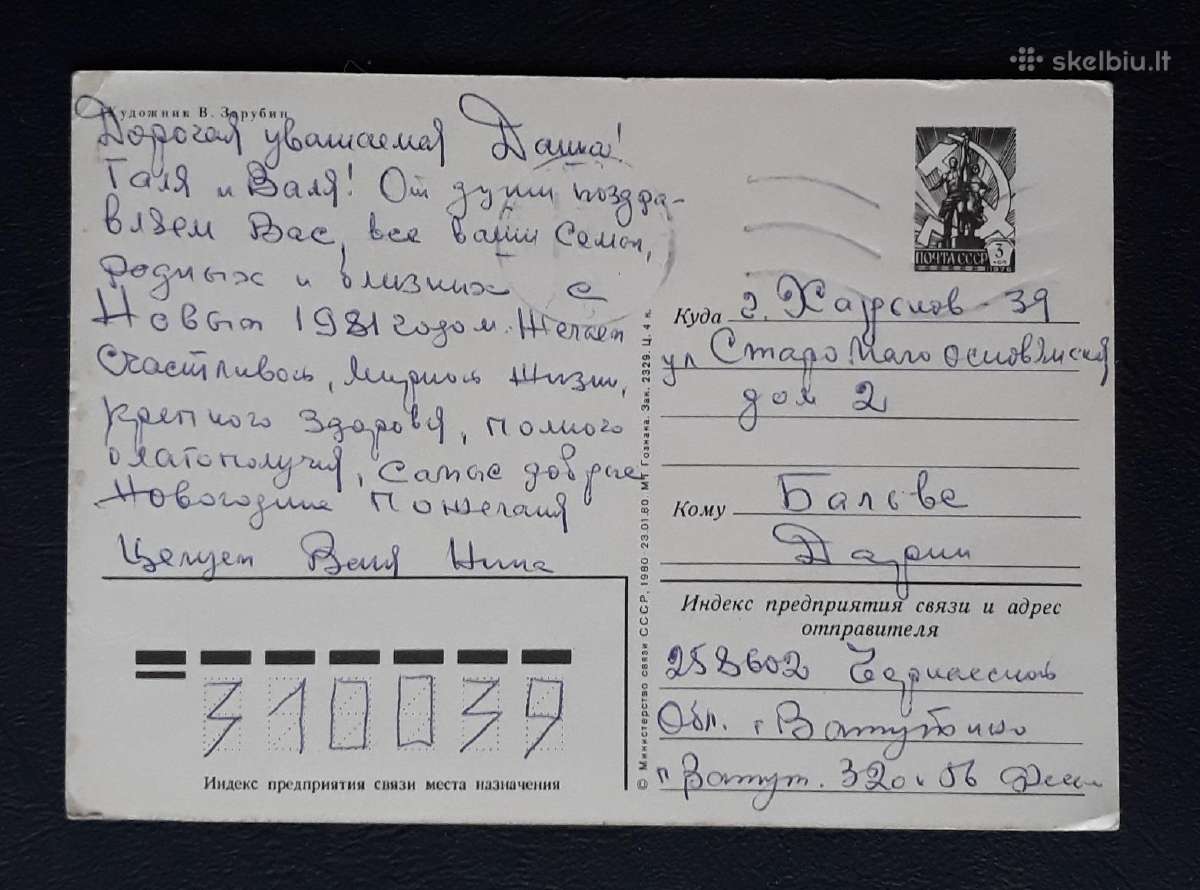 skelbiu.lt
Художник В. Зарубин
Дорогая уважаемая Даша!
Галя и Валя! От души поздра-
вляем Вас, все ваши Семьи,
родных и близких с
Новым 1981 годом. Желаем
Счастливой, мирной жизни,
крепкого здоровья, полного
благополучия, Самые добрые
Новогодние Пожелания
Целуем Валя Нина
ПОЧТА СССР 3 коп
Куда г. Харьков-39
ул Старо
дом 2
Кому Бальве
Дарии
Индекс предприятия связи и адрес
отправителя
258602 Черкасской
Обл. г Ватутино
Ватут. 32
310039
Индекс предприятия связи места назначения
© Министерство связи СССР, 1980 23.01.80. МТ Гознака. Зак. 2329. Ц. 4 к.